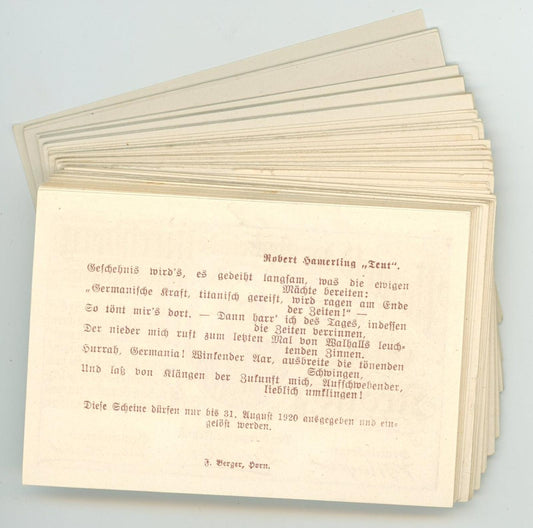 Robert Hamerling „Teut“.
Geschehnis wird's, es gedeiht langsam, was die ewigen
Mächte bereiten:
„Germanische Kraft, titanisch gereift, wird ragen am Ende
der Zeiten!“ —
So tönt mir's dort. — Dann harr' ich des Tages, indessen
die Zeiten verrinnen,
Der nieder mich ruft zum letzten Mal von Walhalls leuch-
tenden Zinnen.
Hurrah, Germania! Winkender Aar, ausbreite die tönenden
Schwingen,
Und laß von Klängen der Zukunft mich, Aufschwebender,
lieblich umklingen!
Diese Scheine dürfen nur bis 31. August 1920 ausgegeben und ein-
gelöst werden.
F. Berger, Horn.